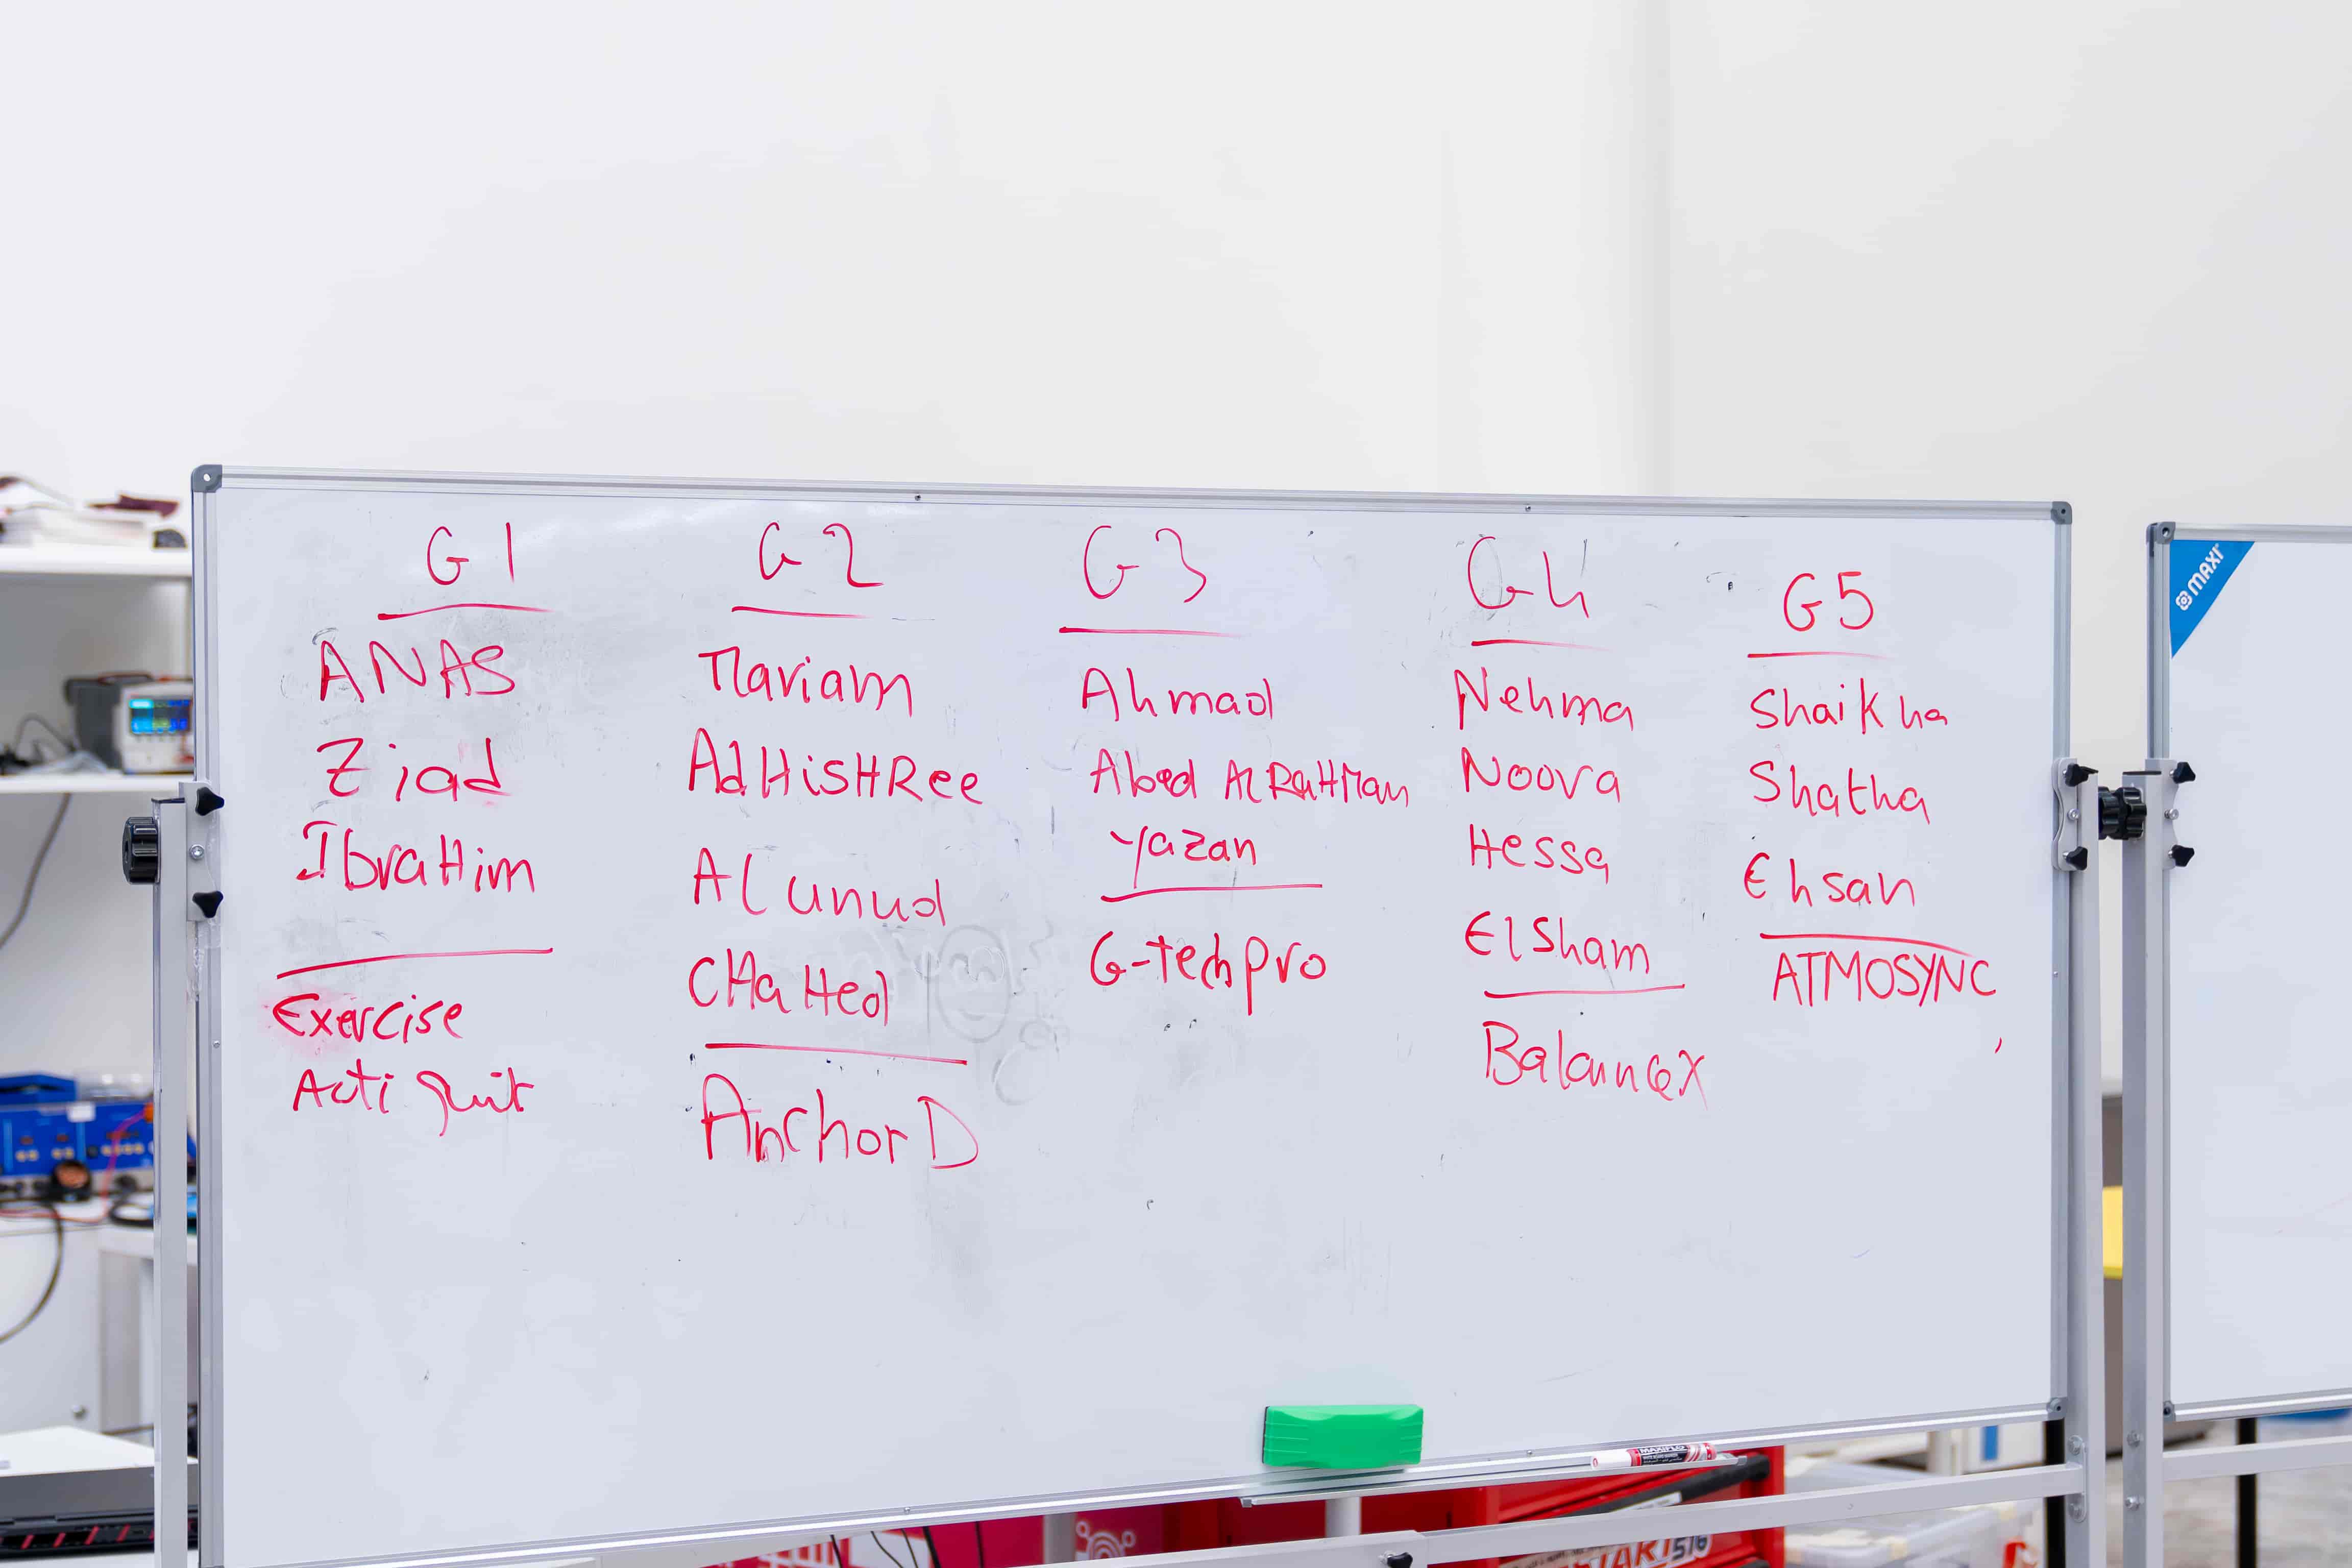 G1
ANAS
Ziad
IbraHim
Exercise
Acti
G2
Mariam
AdHisHRee
ALunud
CHaHed
AnchorD
G3
Ahmad
Abed AlRaHMan
Yazan
G-techpro
G4
Nehma
Noora
Hessa
ElSham
BalanceX
G5
Shaikha
Shatha
Ehsan
ATMOSYNC
MAXI